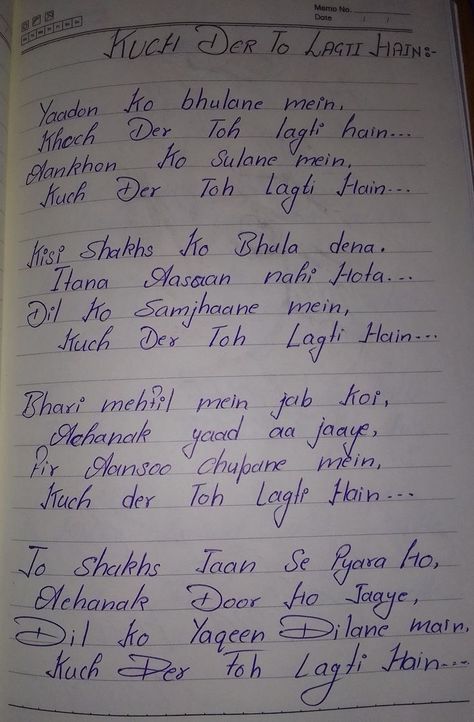 Memo No.
Date / /
KUCH DER TO LAGTI HAIN:-
Yaadon Ko bhulane mein,
Khoch Der Toh lagti hain...
Aankhon Ko Sulane mein,
Kuch Der Toh Lagti Hain...
Kisi Shakhs Ko Bhula dena.
Itana Aasaan nahi Hota...
Dil Ko Samjhaane mein,
Kuch Der Toh Lagti Hain...
Bhari mehfil mein jab Koi,
Achanak yaad aa jaaye,
Fir Aansoo Chupane mein,
Kuch der Toh Lagti Hain...
Jo Shakhs Jaan Se Pyara Ho,
Achanak Door Ho Jaaye,
Dil Ko Yaqeen Dilane main,
Kuch Der Toh Lagti Hain...